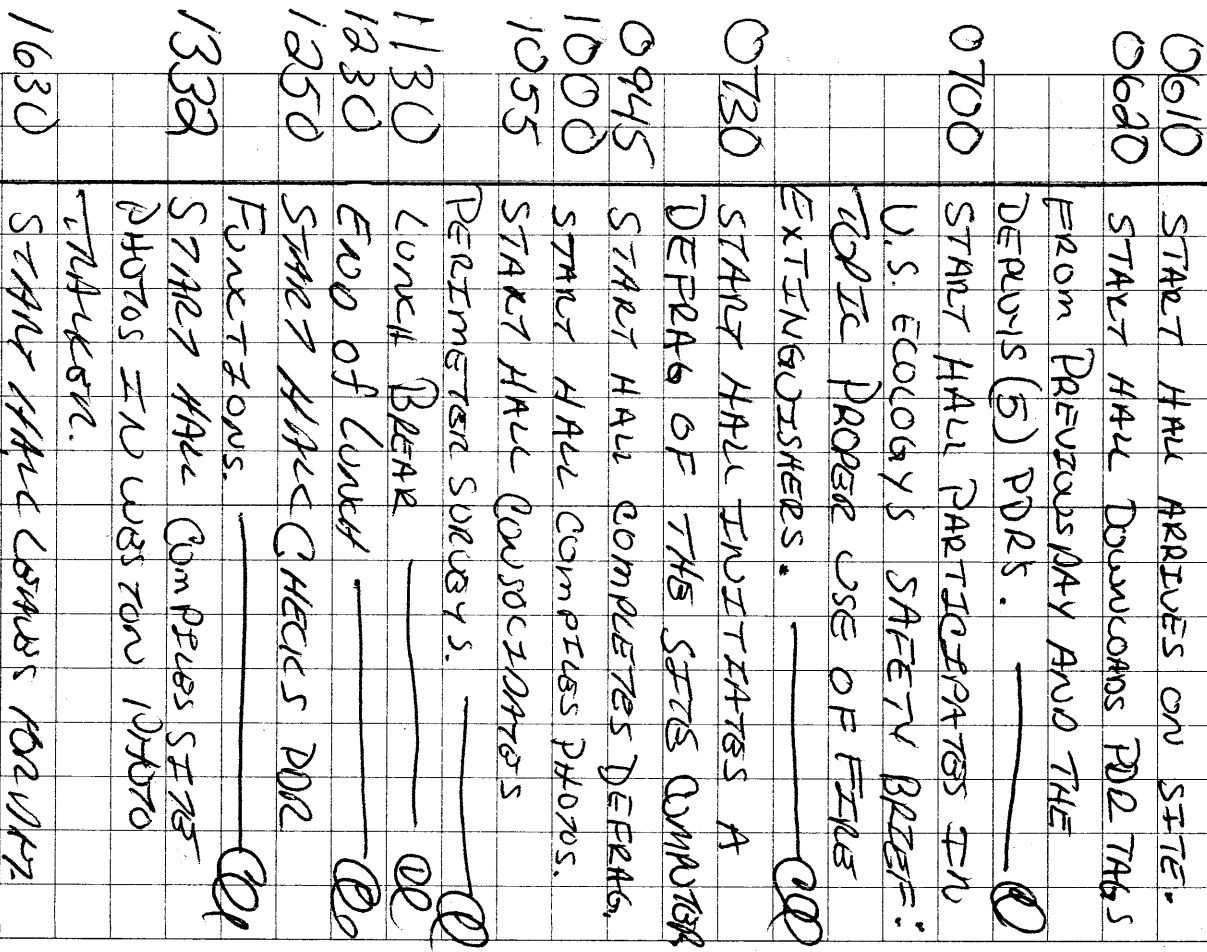 0610 START HALL ARRIVES ON SITE.
0620 START HALL DOWNLOADS PDR TAGS
FROM PREVIOUS DAY AND THE
DEPLOYS (5) PDRS.
0700 START HALL PARTICIPATES IN
U.S. ECOLOGYS SAFETY BRIEF:
TOPIC PROPER USE OF FIRE
EXTINGUISHERS.
0730 START HALL INITIATES A
DEFRAG OF THE SITE COMPUTER
0945 START HALL COMPLETES DEFRAG,
1000 START HALL COMPILES PHOTOS.
1055 START HALL CONSOLIDATES
PERIMETER SURVEYS.
1130 LUNCH BREAK
1230 END OF LUNCH
1250 START HALL CHECKS PDR
FUNCTIONS.
1332 START HALL COMPILES SITE
PHOTOS IN WESTON PHOTO
1630 START HALL